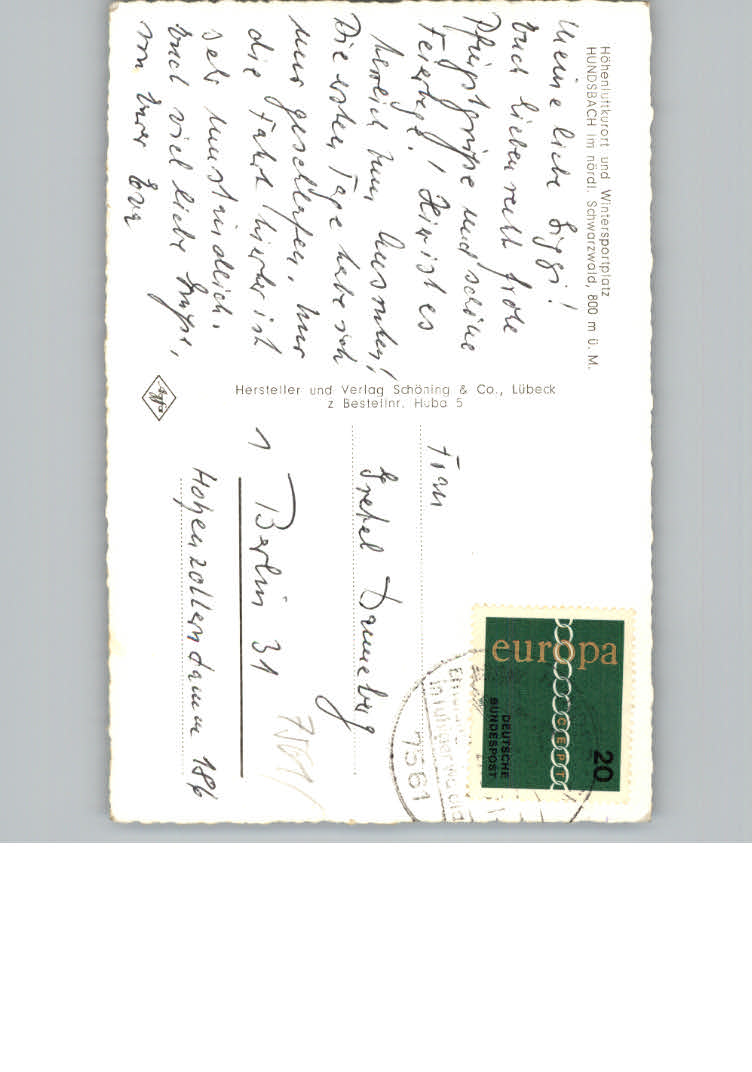 Höhenluftkurort und Wintersportplatz
HUNDSBACH im nördl. Schwarzwald, 800 m ü. M.
Meine liebe Siggi!
Euch Lieben recht frohe
Pfingstgrüße und schöne
Feiertage! Hier ist es
herrlich zum Ausruhen!
Die ersten Tage habe ich
nur geschlafen. Nur
die Fahrt hierher ist
sehr umständlich.
Euch viel liebe Grüße,
von Eurer Eva
Hersteller und Verlag Schöning & Co., Lübeck
z Bestellnr. Huba 5
Agfa
europa
CEPT
20
DEUTSCHE
BUNDESPOST
7561
Frau
Gretel Danneberg
1 Berlin 31
Hohenzollerndamm 186